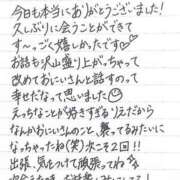 今日も本当にありがとうございました!
久しぶりに会うことができて
す〜っごく嬉しかったです♡
お話も沢山盛り上がっちゃって
改めておにいさんと話すのって
幸せだなって思いました☺
えっちなことが好きすぎるりえだから
なんかおにいさんのこと、襲ってるみたいに
なっちゃったね(笑)次こそ2回!!
出張、気をつけて頑張ってね